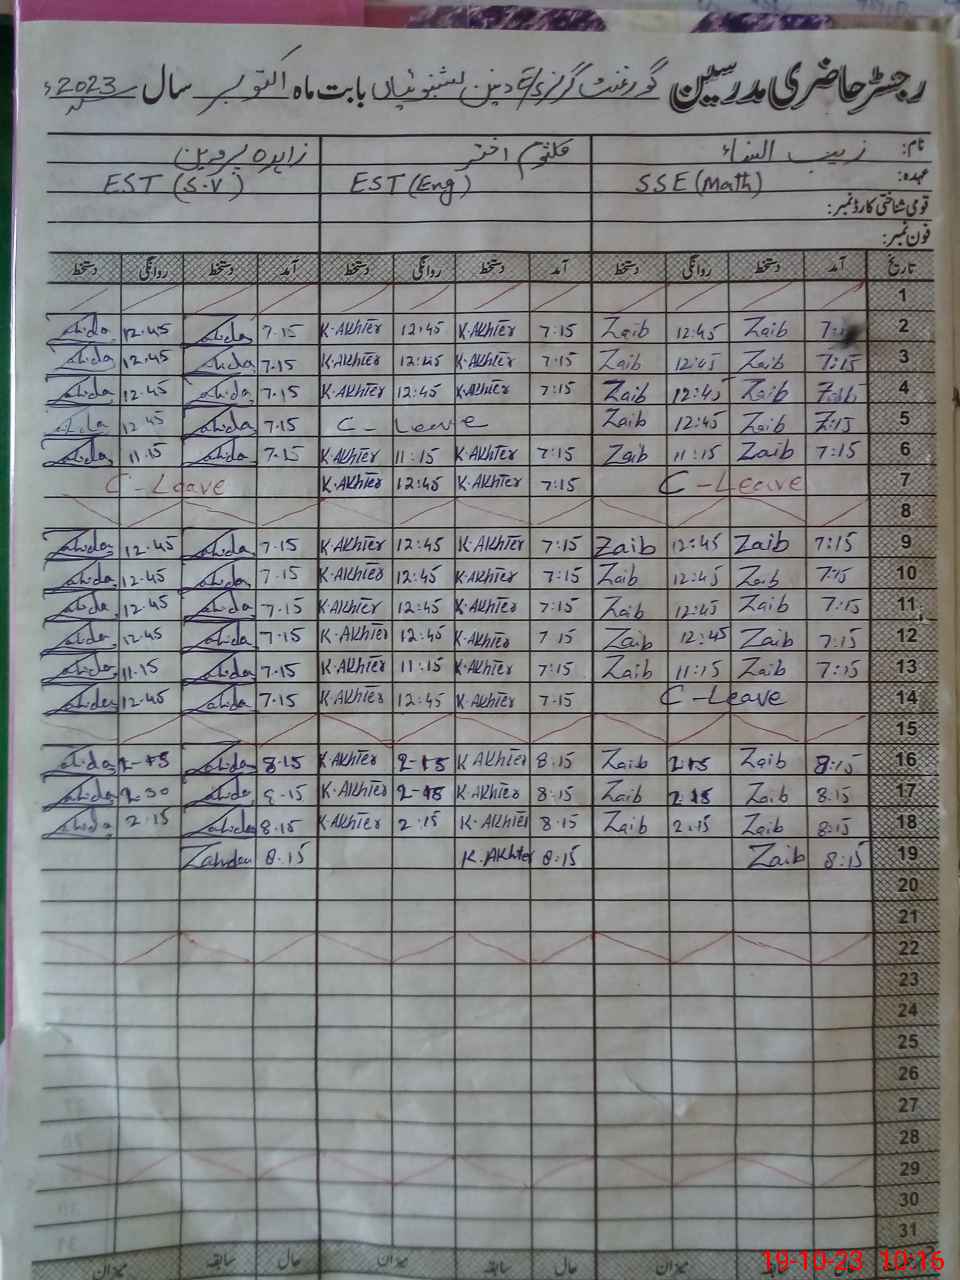 رجسٹر حاضری مدرسین گورنمنٹ گرلز بابت ماہ اکتوبر سال 2023ء
نام: زیب النساء کلثوم اختر زاہدہ پروین
عہدہ: SSE (Math) EST (Eng) EST (S.V)
قومی شناختی کارڈ نمبر:
فون نمبر:
تاریخ آمد دستخط روانگی دستخط آمد دستخط روانگی دستخط آمد دستخط روانگی دستخط
1
2 Zaib 12:45 Zaib 7:15 K.Akhter 12:45 K.Akhter 7.15 Zahida 12.45 Zahida
3 7:15 Zaib 12:45 Zaib 7:15 K.Akhter 12:45 K.Akhter 7.15 Zahida 12.45 Zahida
4 Zaib 12:45 Zaib 7:15 K.Akhter 12:45 K.Akhter 7.15 Zahida 12.45 Zahida
5 7:15 Zaib 12:45 Zaib C-Leave 7.15 Zahida 12 45 Zahida
6 7:15 Zaib 11:15 Zaib 7:15 K.Akhter 11:15 K.Akhter 7.15 Zahida 11.15 Zahida
7 C-Leave 7:15 K.Akhter 12:45 K.Akhter C-Leave
8
9 7:15 Zaib 12:45 Zaib 7:15 K.Akhter 12:45 K.Akhter 7.15 Zahida 12.45 Zahida
10 7:15 Zaib 12:45 Zaib 7:15 K.Akhter 12:45 K.Akhter 7.15 Zahida 12.45 Zahida
11 7:15 Zaib 12:45 Zaib 7:15 K.Akhter 12:45 K.Akhter 7.15 Zahida 12.45 Zahida
12 7:15 Zaib 12:45 Zaib 7 15 K.Akhter 12:45 K.Akhter 7.15 Zahida 12.45 Zahida
13 7:15 Zaib 11:15 Zaib 7:15 K.Akhter 11:15 K.Akhter 7.15 Zahida 11.15 Zahida
14 C-Leave 7.15 K.Akhter 12:45 K.Akhter 7.15 Zahida 12.45 Zahida
15
16 8:15 Zaib 2:15 Zaib 8.15 K.Akhter 2-15 K.Akhter 8.15 Zahida 2-15 Zahida
17 8.15 Zaib 2.15 Zaib 8:15 K.Akhter 2-15 K.Akhter 8.15 Zahida Zahida
18 8:15 Zaib 2.15 Zaib 8.15 K.Akhter 2.15 K.Akhter 8.15 Zahida 2.15 Zahida
19 8:15 Zaib 8:15 K.Akhter 8.15 Zahida
20
21
22
23
24
25
26
27
28
29
30
31
حال سابقہ میزان حال سابقہ میزان حال سابقہ میزان
19-10-23 10:16